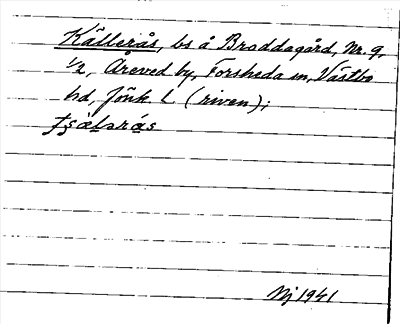 Källerås, bs å Broddagård, Nr. 9,
1/2, Åreved by, Forsheda sn, Västbo
hd, Jönk. l. (riven);
ɟʂàləràs
Nj 1941